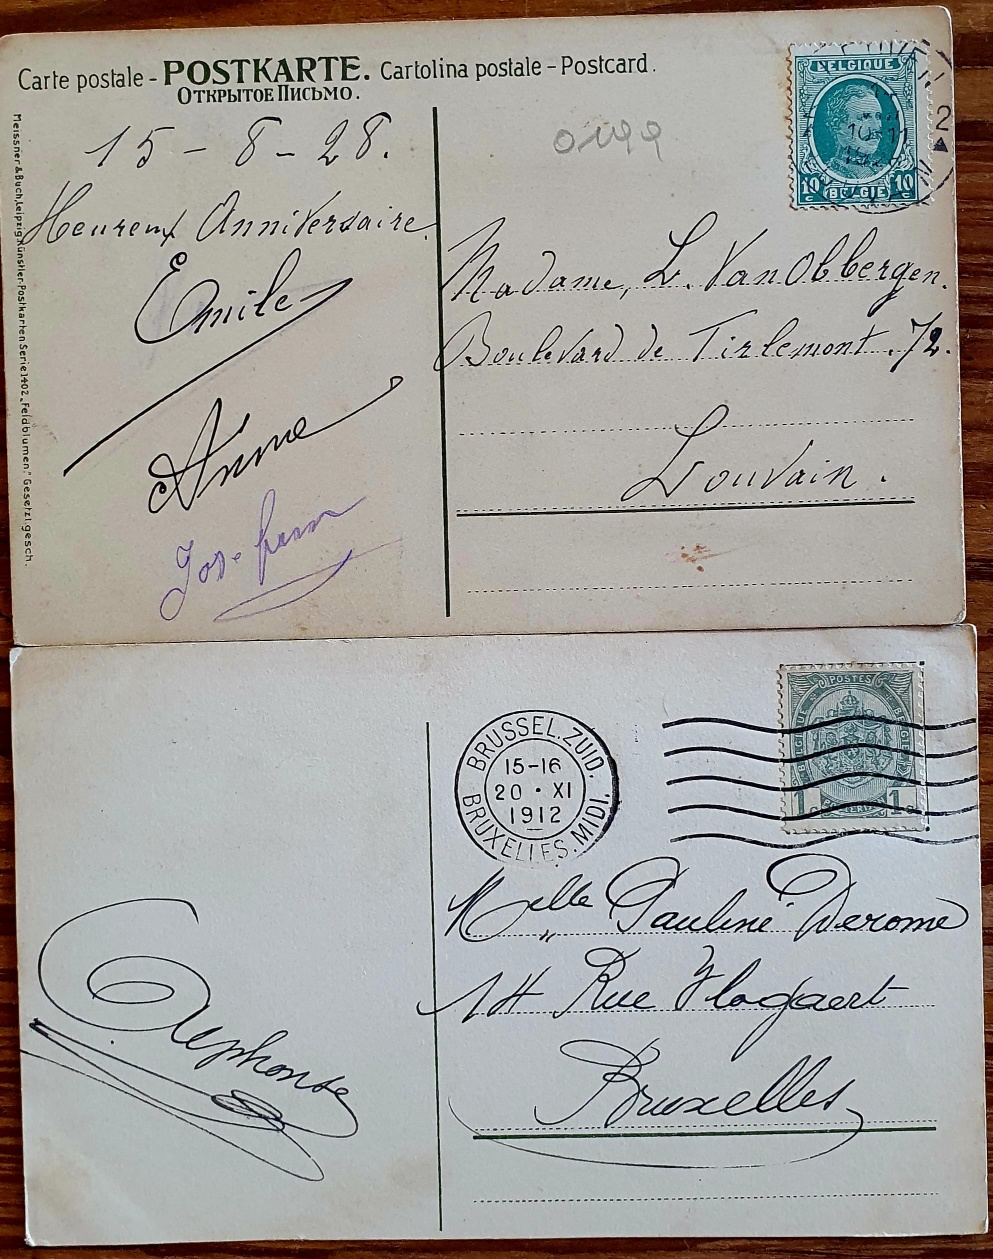 Carte postale - POSTKARTE. Cartolina postale - Postcard.
ОТКРЫТОЕ ПИСЬМО.
Meissner & Buch, Leipzig Künstler-Postkarten Serie 1402 „Feldblumen." Gesetzl. gesch.
15 - 8 - 28.
Heureux Anniversaire
Emile
Anna
BELGIQUE
10 c BELGIË 10 c
2
Madame, L. Van Obbergen.
Boulevard de Tirlemont. 72.
Louvain.
BRUSSEL.ZUID.
15-16
20 • XI
1912
BRUXELLES.MIDI.
POSTES
BELGIQUE BELGIË
1 c 1 c
Melle Pauline Derome
14 Rue Vlogaert
Bruxelles
Alphonse